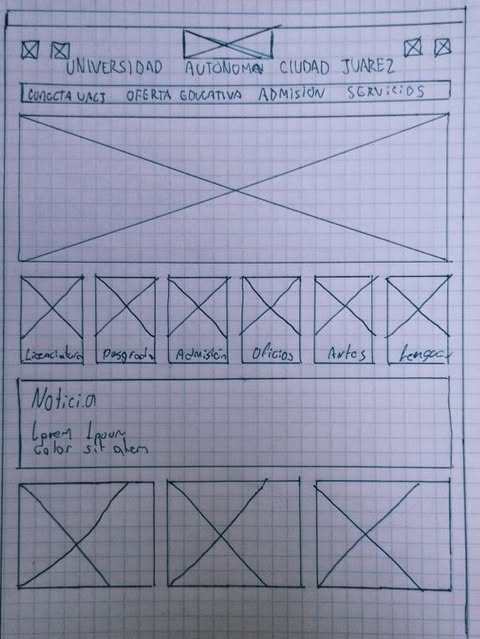 UNIVERSIDAD AUTÓNOMA CIUDAD JUAREZ
CONECTA UACJ OFERTA EDUCATIVA ADMISIÓN SERVICIOS
Licenciatura Posgrado Admisión Oficios Artes
Noticia
Lorem Ipsum